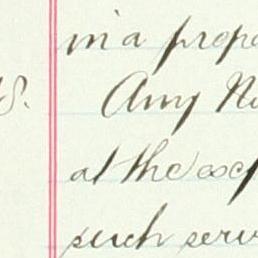 in a propo
8.
Any No
at the exp
such serv